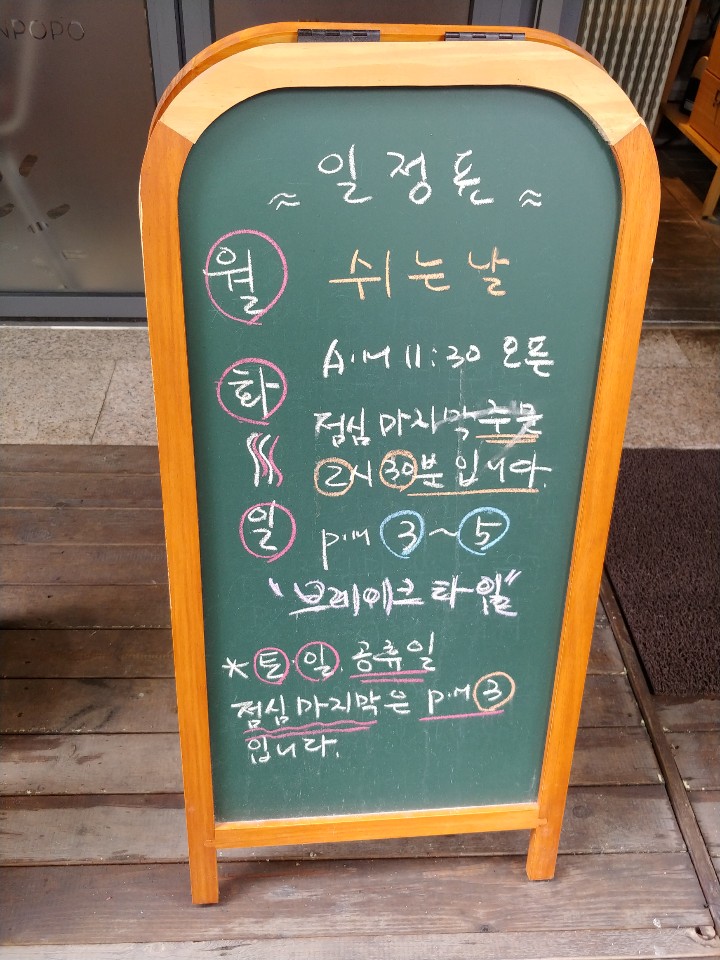 NPOPO
≈ 일정톤 ≈
월 쉬는날
화 A.M 11:30 오픈
점심 마지막 주문
2시 30분입니다.
일 P.M 3~5
"브레이크 타임"
* 토.일 공휴일
점심 마지막은 P.M 3
입니다.